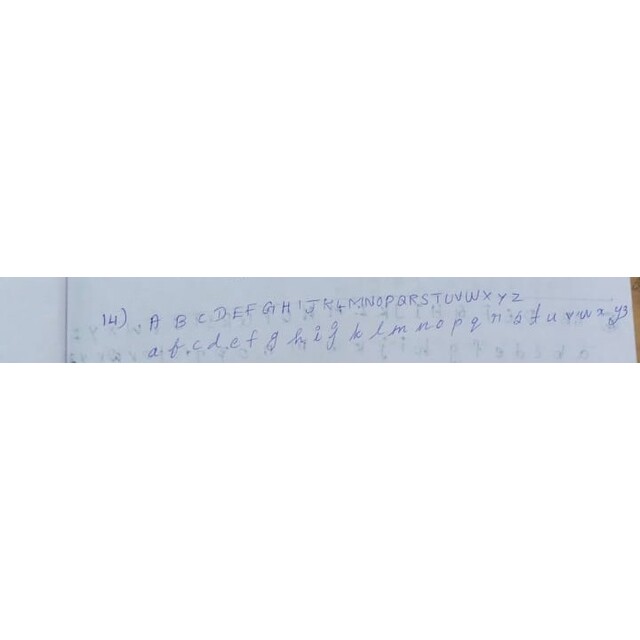 14) A B C D E F G H I J K L M N O P Q R S T U V W X Y Z
a b c d e f g h i j k l m n o p q r s t u v w x y z